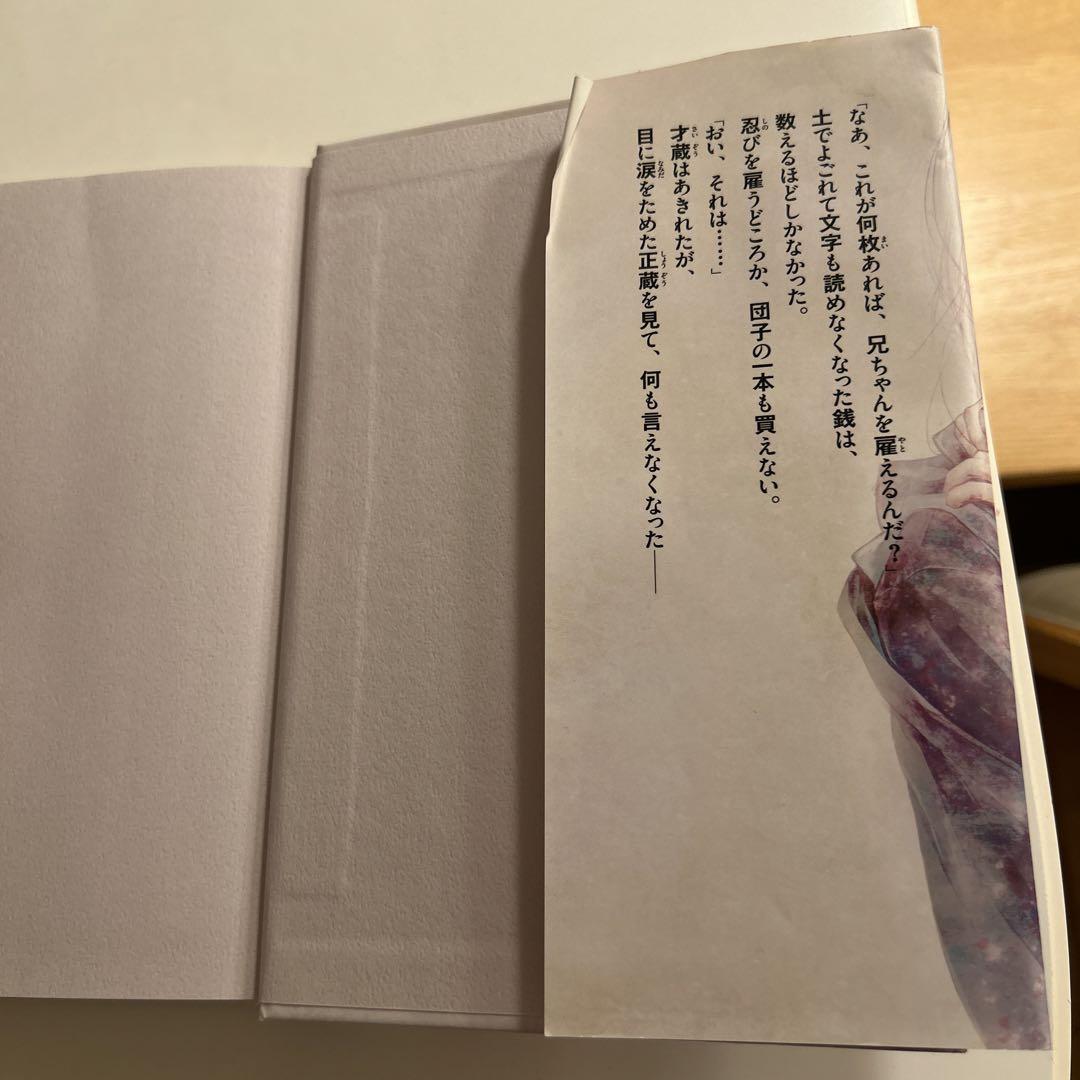 「なあ、これが何枚あれば、兄ちゃんを雇えるんだ？」
土でよごれて文字も読めなくなった銭は、
数えるほどしかなかった。
忍びを雇うどころか、団子の一本も買えない。
「おい、それは……」
才蔵はあきれたが、
目に涙をためた正蔵を見て、何も言えなくなった――